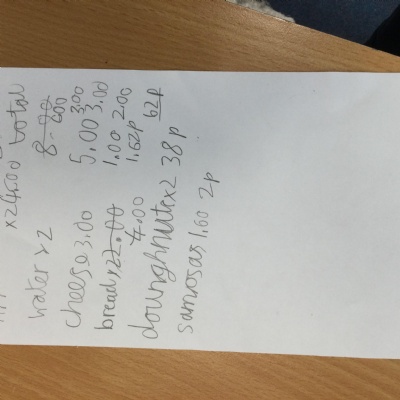 x24.00 total
water x2 8.00 600
cheese 3.00 5.00 3.00 3.00
bread x22.00 1.00 2.00
4.00 1.62p 62p
doughnuts x2 38p
samosas 1.60 2p